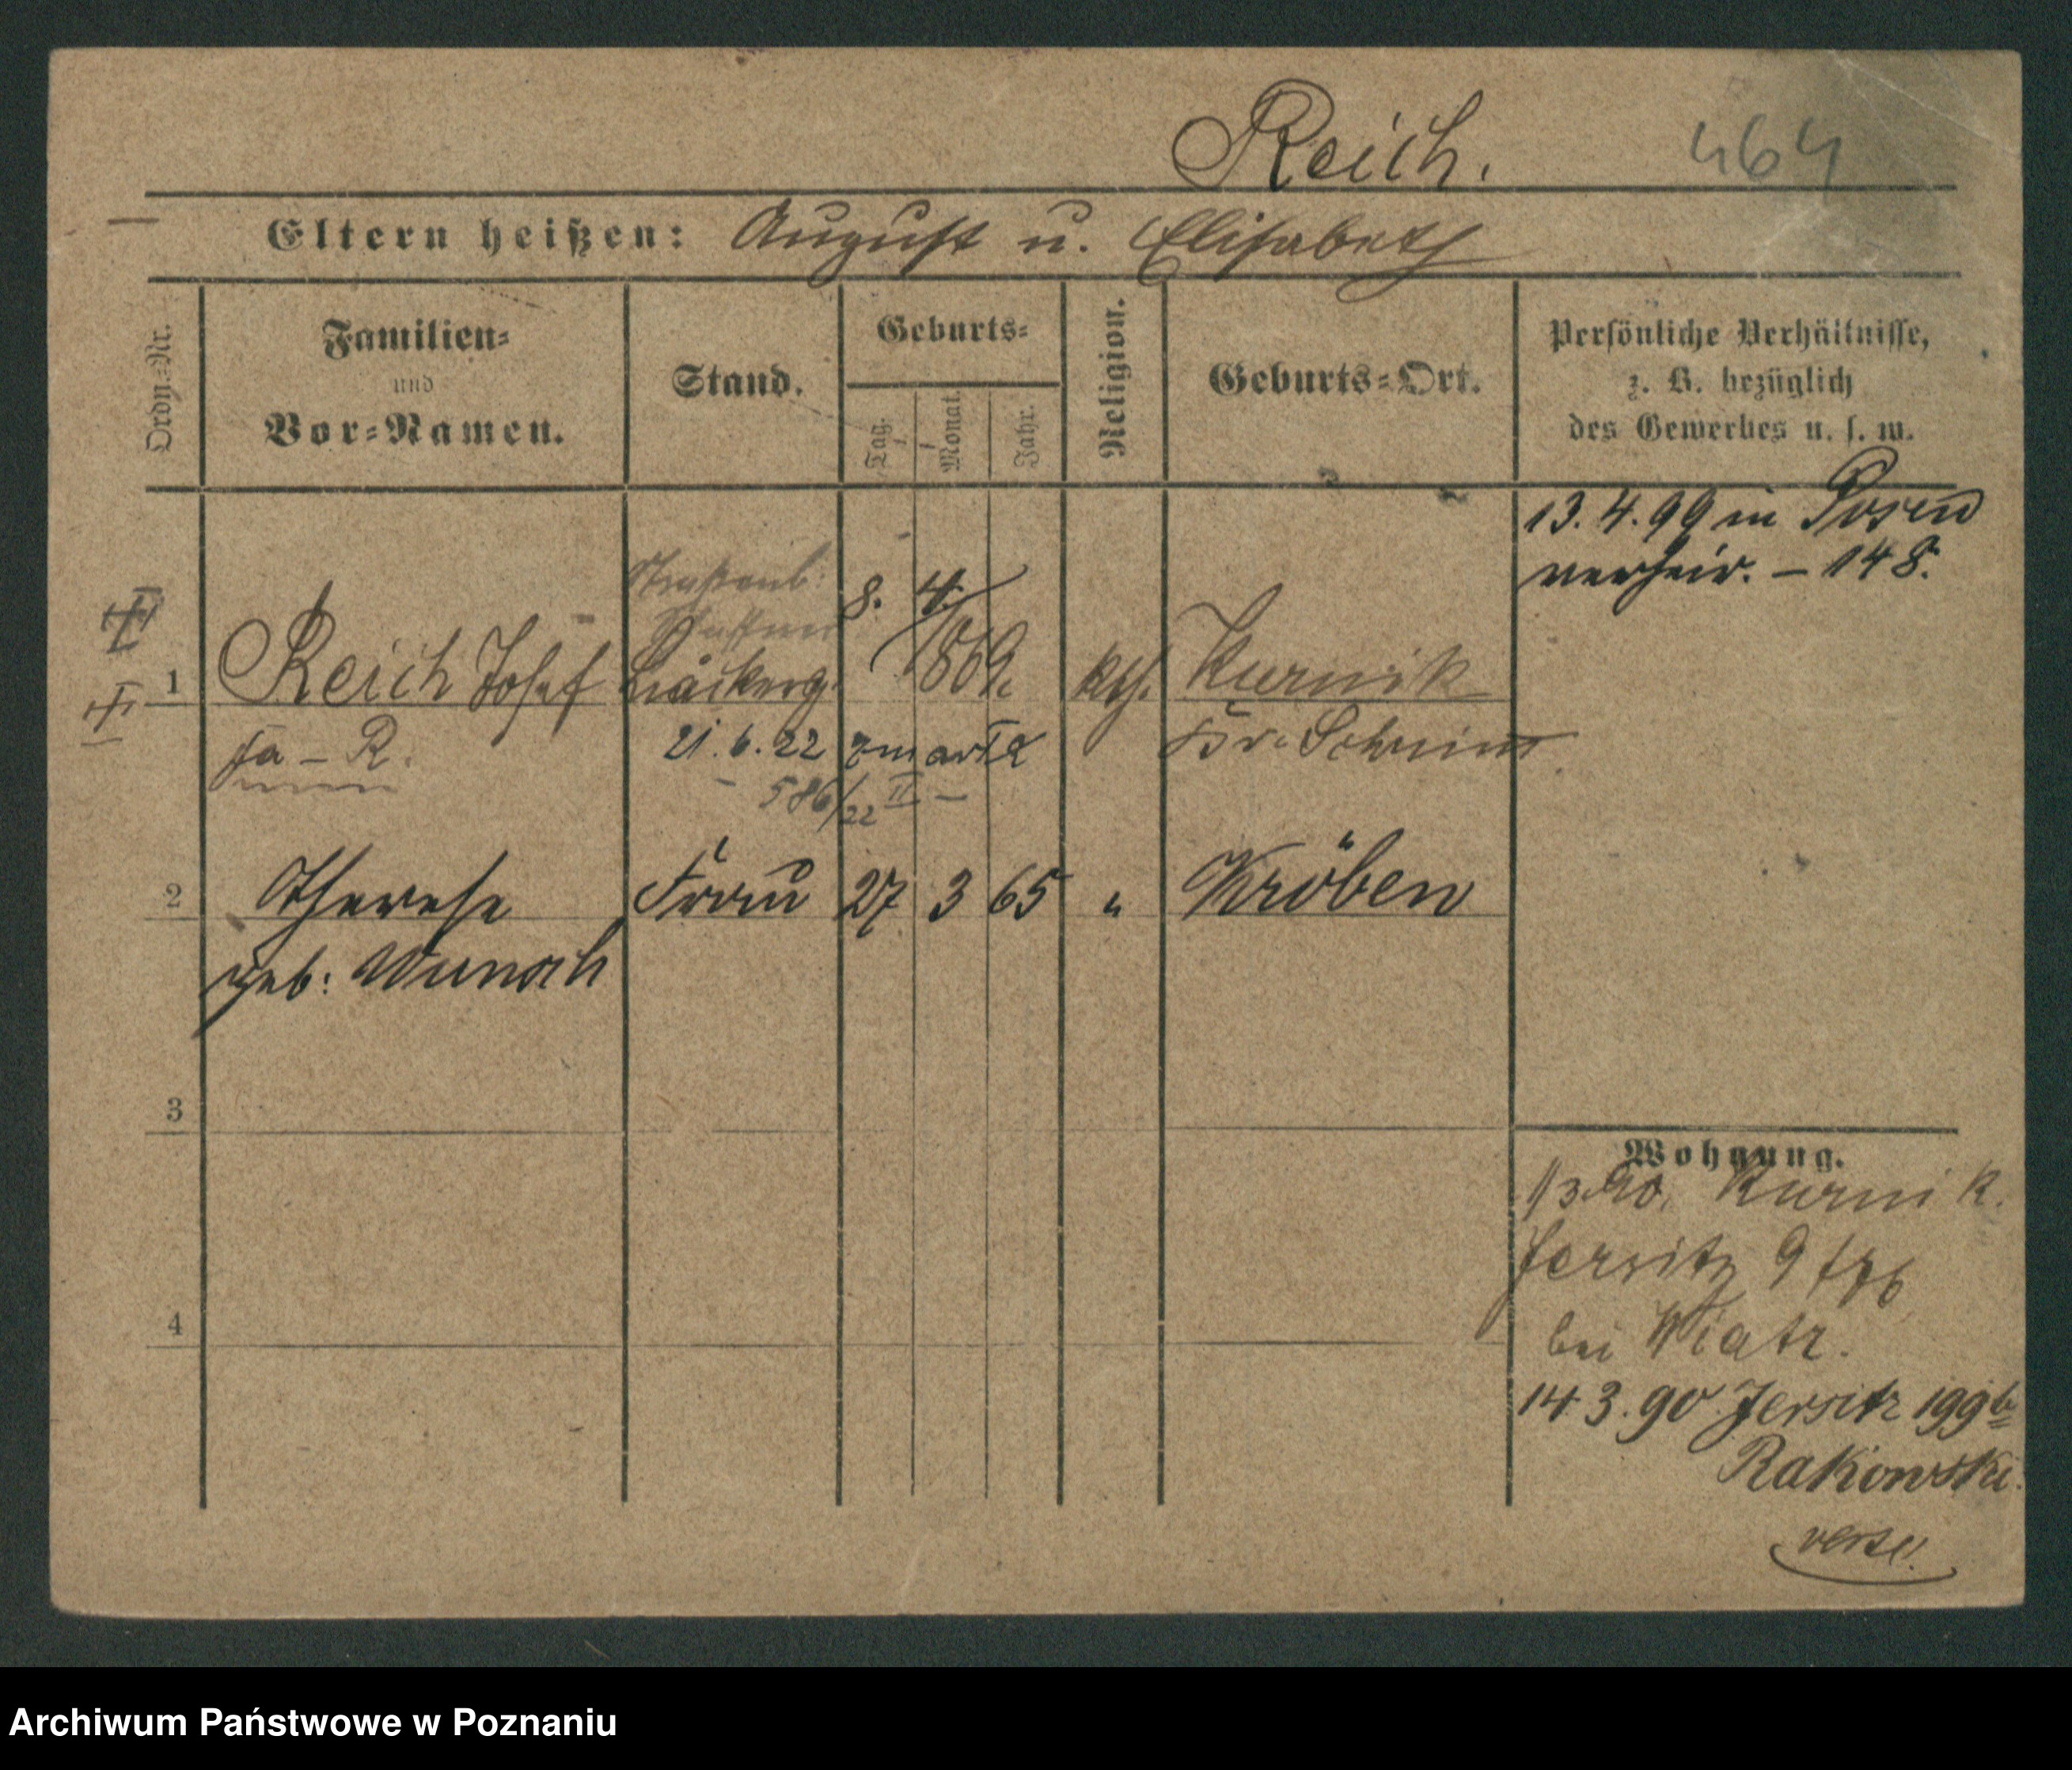 Reich.
464
Eltern heißen: August u. Elisabeth
Ordn.-Nr.
Familien-
und
Vor-Namen.
Stand.
Geburts-
Tag.
Monat.
Jahr.
Religion.
Geburts-Ort.
Persönliche Verhältnisse,
z. B. bezüglich
des Gewerbes u. s. w.
13. 4. 99 in Posen
verheir. – 148.
1 Reich Josef 8. 4. 1869. kth. Kurnik
21. 6. 22 zmarła Kr. Schrimm
586/22 II –
2 Therese Frau 27 3 65 " Kröben
geb: Wunsch
3
Wohnung.
Kurnik.
4
Jersitz
bei Wiatr.
14. 3. 90. Jersitz 199b
Rakowski.
verte!
Archiwum Państwowe w Poznaniu